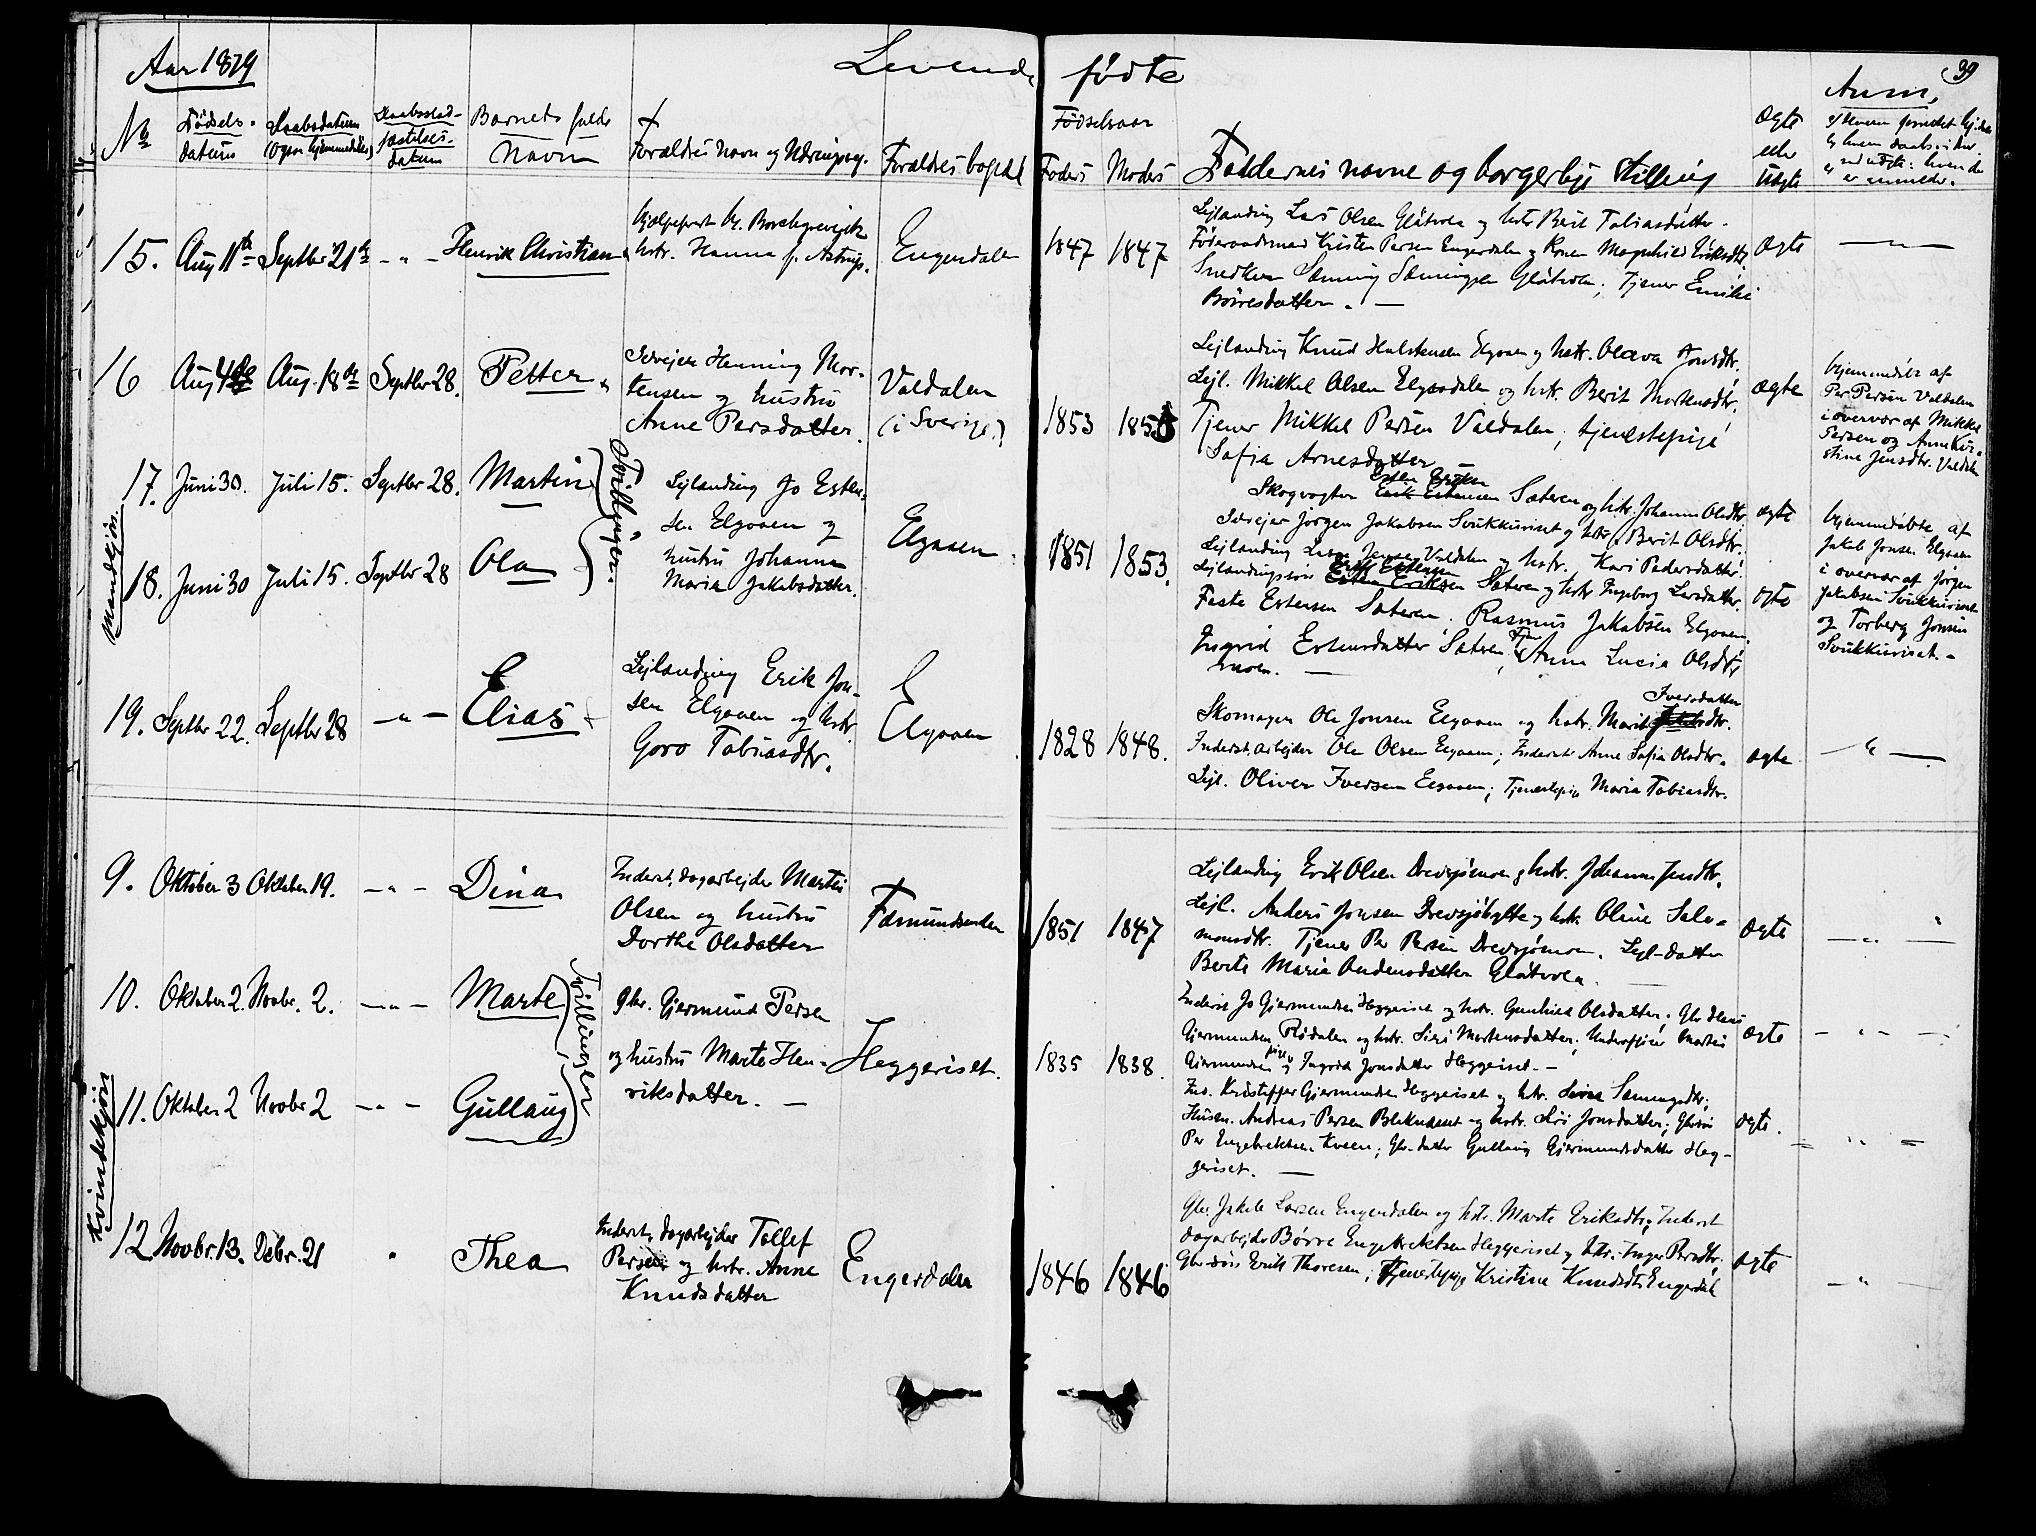 Aar 1879
Levende fødte
39
No
Fødsels-
datum
Daabsdatum
(ogsaa hjemmedøbt)
Daabsstad-
fæstelses-
datum
Barnets fulde
Navn
Forældres Navn og Næringsvej.
Forældres bopæl
Fødselsaar
Faders
Moders
Faddernes navne og borgerlige stilling
Ægte
eller
Uægte
Anm.
Mandkjøn
15. Aug 11te Septbr 21de - " - Henrik Christian
hstr. Hanna f. Astrup.
Engerdalen
1847 1847
Lejlænding Lars Olsen Gløtvola og hstr Berit Tobiasdatter.
Føderaadsmand Kristen Persen Engerdalen og Konen Magnhild Eriksdtr.
Snedker Sæming Sæmingsen Gløtvola; Tjener Emilie
Børresdatter. —
Ægte
16 Aug 4de Aug. 18de Septbr 28. Petter
Selvejer Henning Mor-
tensen og hustru
Anne Persdatter.
Valdalen
(i Sverige)
1853
Lejlænding Knud Halstensen Elgaaen og hstr. Olava Jonsdtr.
Lejl. Mikkel Olsen Elgaadalen og hstr. Berit Mortensdtr.
Tjener Mikkel Persen Valdalen, tjenestepige
Sofia Arnesdatter
ægte
hjemmedøbt af
Per Persen Valdalen
i overvær af Mikkel
Persen og Anne Kir-
stine Jensdtr. Valdalen
17. Juni 30. Juli 15. Septbr 28. Martin
18. Juni 30 Juli 15. Septbr 28 Ola
Tvillinger.
Lejlænding Jo Esten-
sen Elgaaen og
hustru Johanna
Maria Jakobsdatter.
Elgaaen
1851 1853.
Esten Eriksen
Skogvogter Erik Estensen Sæteren og hstr. Johanna Olsdtr
Selvejer Jørgen Jakobsen Svukkuriset og hstr. Berit Olsdtr.
Lejlænding Lars Jonsen Valdalen og hstr. Kari Pedersdatter.
Erik Estensen
Lejlændingssøn Esten Eriksen Sæteren og hstr Ingeborg Larsdatter.
Feste Estensen Sæteren, Rasmus Jakobsen Elgaaen,
Ingrid Estensdatter Sæteren, Tjen Anne Lucia Olsdtr
ægte
ægte
hjemmedøbte af
Jakob Jonsen Elgaaen
i overvær af Jørgen
Jakobsen Svukkuriset
og Torberg Jonsen
Svukkuriset. -
19. Septbr 22. Septbr 28 - " - Elias
Lejlænding Erik Jon-
sen Elgaaen og hstr.
Goro Tobiasdtr.
Elgaaen
1828 1848.
Iversdatter
Skomager Ole Jonsen Elgaaen og hstr. Marit
Inderst, arbejder Ole Olsen Elgaaen; Inderst Anne Sofia Olsdtr.
Lejl. Oliver Iversen Elgaaen; Tjenestepige Maria Tobiasdtr.
ægte
- " -
Kvindekjøn
9. Oktober 3 Oktober 19. - " - Dina
Inderst, dagarbejder Martin
Olsen og hustru
Dorthe Olsdatter
Fæmundsenden
1851 1847
Lejlænding Erik Olsen Drevsjømoen og hstr. Johanna Jensdtr.
Lejl. Anders Jonsen Drevsjøhytte og hstr. Oline Salo-
monsdtr. Tjener Per Persen Drevsjømoen. Lejl-datter
Berte Maria Andersdatter Gløtvola. —
Ægte
- " -
10. Oktober 2. Novbr. 2. - " - Marte
11. Oktober 2 Novbr 2 - " - Gullaug
Tvillinger
Gbr. Gjermund Persen
og hustru Marte Hen-
riksdatter. —
Heggeriset.
1835 1838.
Inderst Jo Gjermundsen Heggeriset og hstr. Gunhild Olsdatter; Gbr
Gjermundsen Rødalen og hstr. Siri Mortensdatter; Underofficer Morten
Gjermundsen og pige Ingrid Jonsdatter Heggeriset. -
Ins. Kristoffer Gjermundsen Heggeriset og hstr. Sæmingsdtr;
Husm. Andreas Persen og hstr. Siri Jonsdatter; Gbrsøn
Per Engebretsen Kveen; Gbr-datter Gullaug Gjermundsdatter Heg-
geriset. —
ægte
ægte.
- " -
- " -
12 Novbr. 13. Debr. 21 " Thea
Inderst, dagarbejder Tollef
Persen og hstr. Anne
Knudsdatter
Engerdalen
1846 1846
Gbr. Jakob Larsen Engerdalen og hstr. Marte Eriksdtr, Inderst
dagarbejder Børre Engebretsen Heggeriset og hstr. Inger Persdtr,
Gbrsøn Erik Thoresen, Tjenestepige Kristine Knudsdtr Engerdal
ægte
- " -